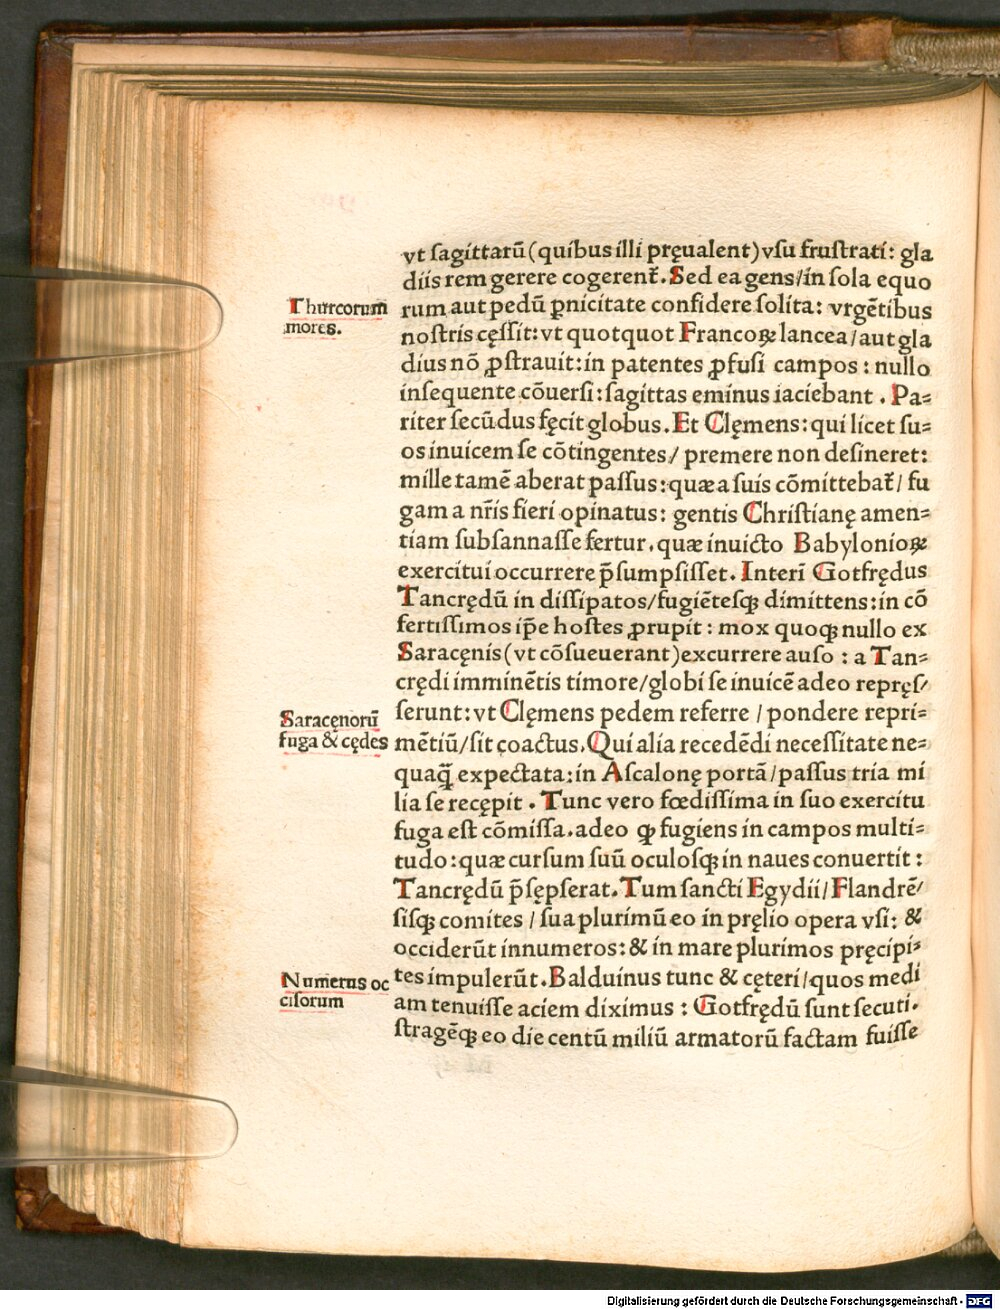 vt ſagittarū (quibus illi pręualent) vſu fruſtrati: gla
diis rem gerere cogerent᷑. Sed ea gens/in ſola equo
Thurcorum
mores.
rum aut pedū ꝑnicitate confidere ſolita: vrgētibus
noſtris ceſſit: vt quotquot Francoꝝ lancea/aut gla
dius nō ꝓſtrauit: in patentes ꝓfuſi campos: nullo
inſequente cōuerſi: ſagittas eminus iaciebant. Pa⸗
riter ſecūdus fęcit globus. Et Clęmens: qui licet ſu⸗
os inuicem ſe cōtingentes/ premere non deſineret:
mille tamē aberat paſſus: quæ a ſuis cōmittebat᷑/ fu
gam a nr̄is fieri opinatus: gentis Chriſtianę amen⸗
tiam ſubſannaſſe fertur. quæ inuicto Babylonioꝝ
exercitui occurrere p̄ſumpſiſſet. Interī Gotfrędus
Tancrędū in diſſipatos/fugiēteſqꝫ dimittens: in cō
fertiſſimos ip̄e hoſtes ꝓrupit: mox quoqꝫ nullo ex
Saracęnis (vt cōſueuerant) excurrere auſo: a Tan⸗
crędi imminētis timore/globi ſe inuicē adeo repręſ/
Saracęnorū
fuga & cędes
ſerunt: vt Clęmens pedem referre / pondere repri⸗
mētiū/ſit coactus. Qui alia recedēdi neceſſitate ne⸗
quaq̄ expectata: in Aſcalonę portā/paſſus tria mi
lia ſe recępit. Tunc vero fœdiſſima in ſuo exercitu
fuga eſt cōmiſſa. adeo ꝙ fugiens in campos multi⸗
tudo: quæ curſum ſuū oculoſqꝫ in naues conuertit:
Tancrędū p̄ſępſerat. Tum ſancti Egydii/ Flandrē/
ſiſqꝫ comites / ſua plurimū eo in pręlio opera vſi: &
occiderūt innumeros: & in mare plurimos pręcipi⸗
Numerus oc
ciſorum
tes impulerūt. Balduinus tunc & cęteri/quos medi
am tenuiſſe aciem diximus: Gotfrędū ſunt ſecuti.
ſtragēqꝫ eo die centū miliū armatorū factam fuiſſe
Digitalisierung gefördert durch die Deutsche Forschungsgemeinschaft - DFG